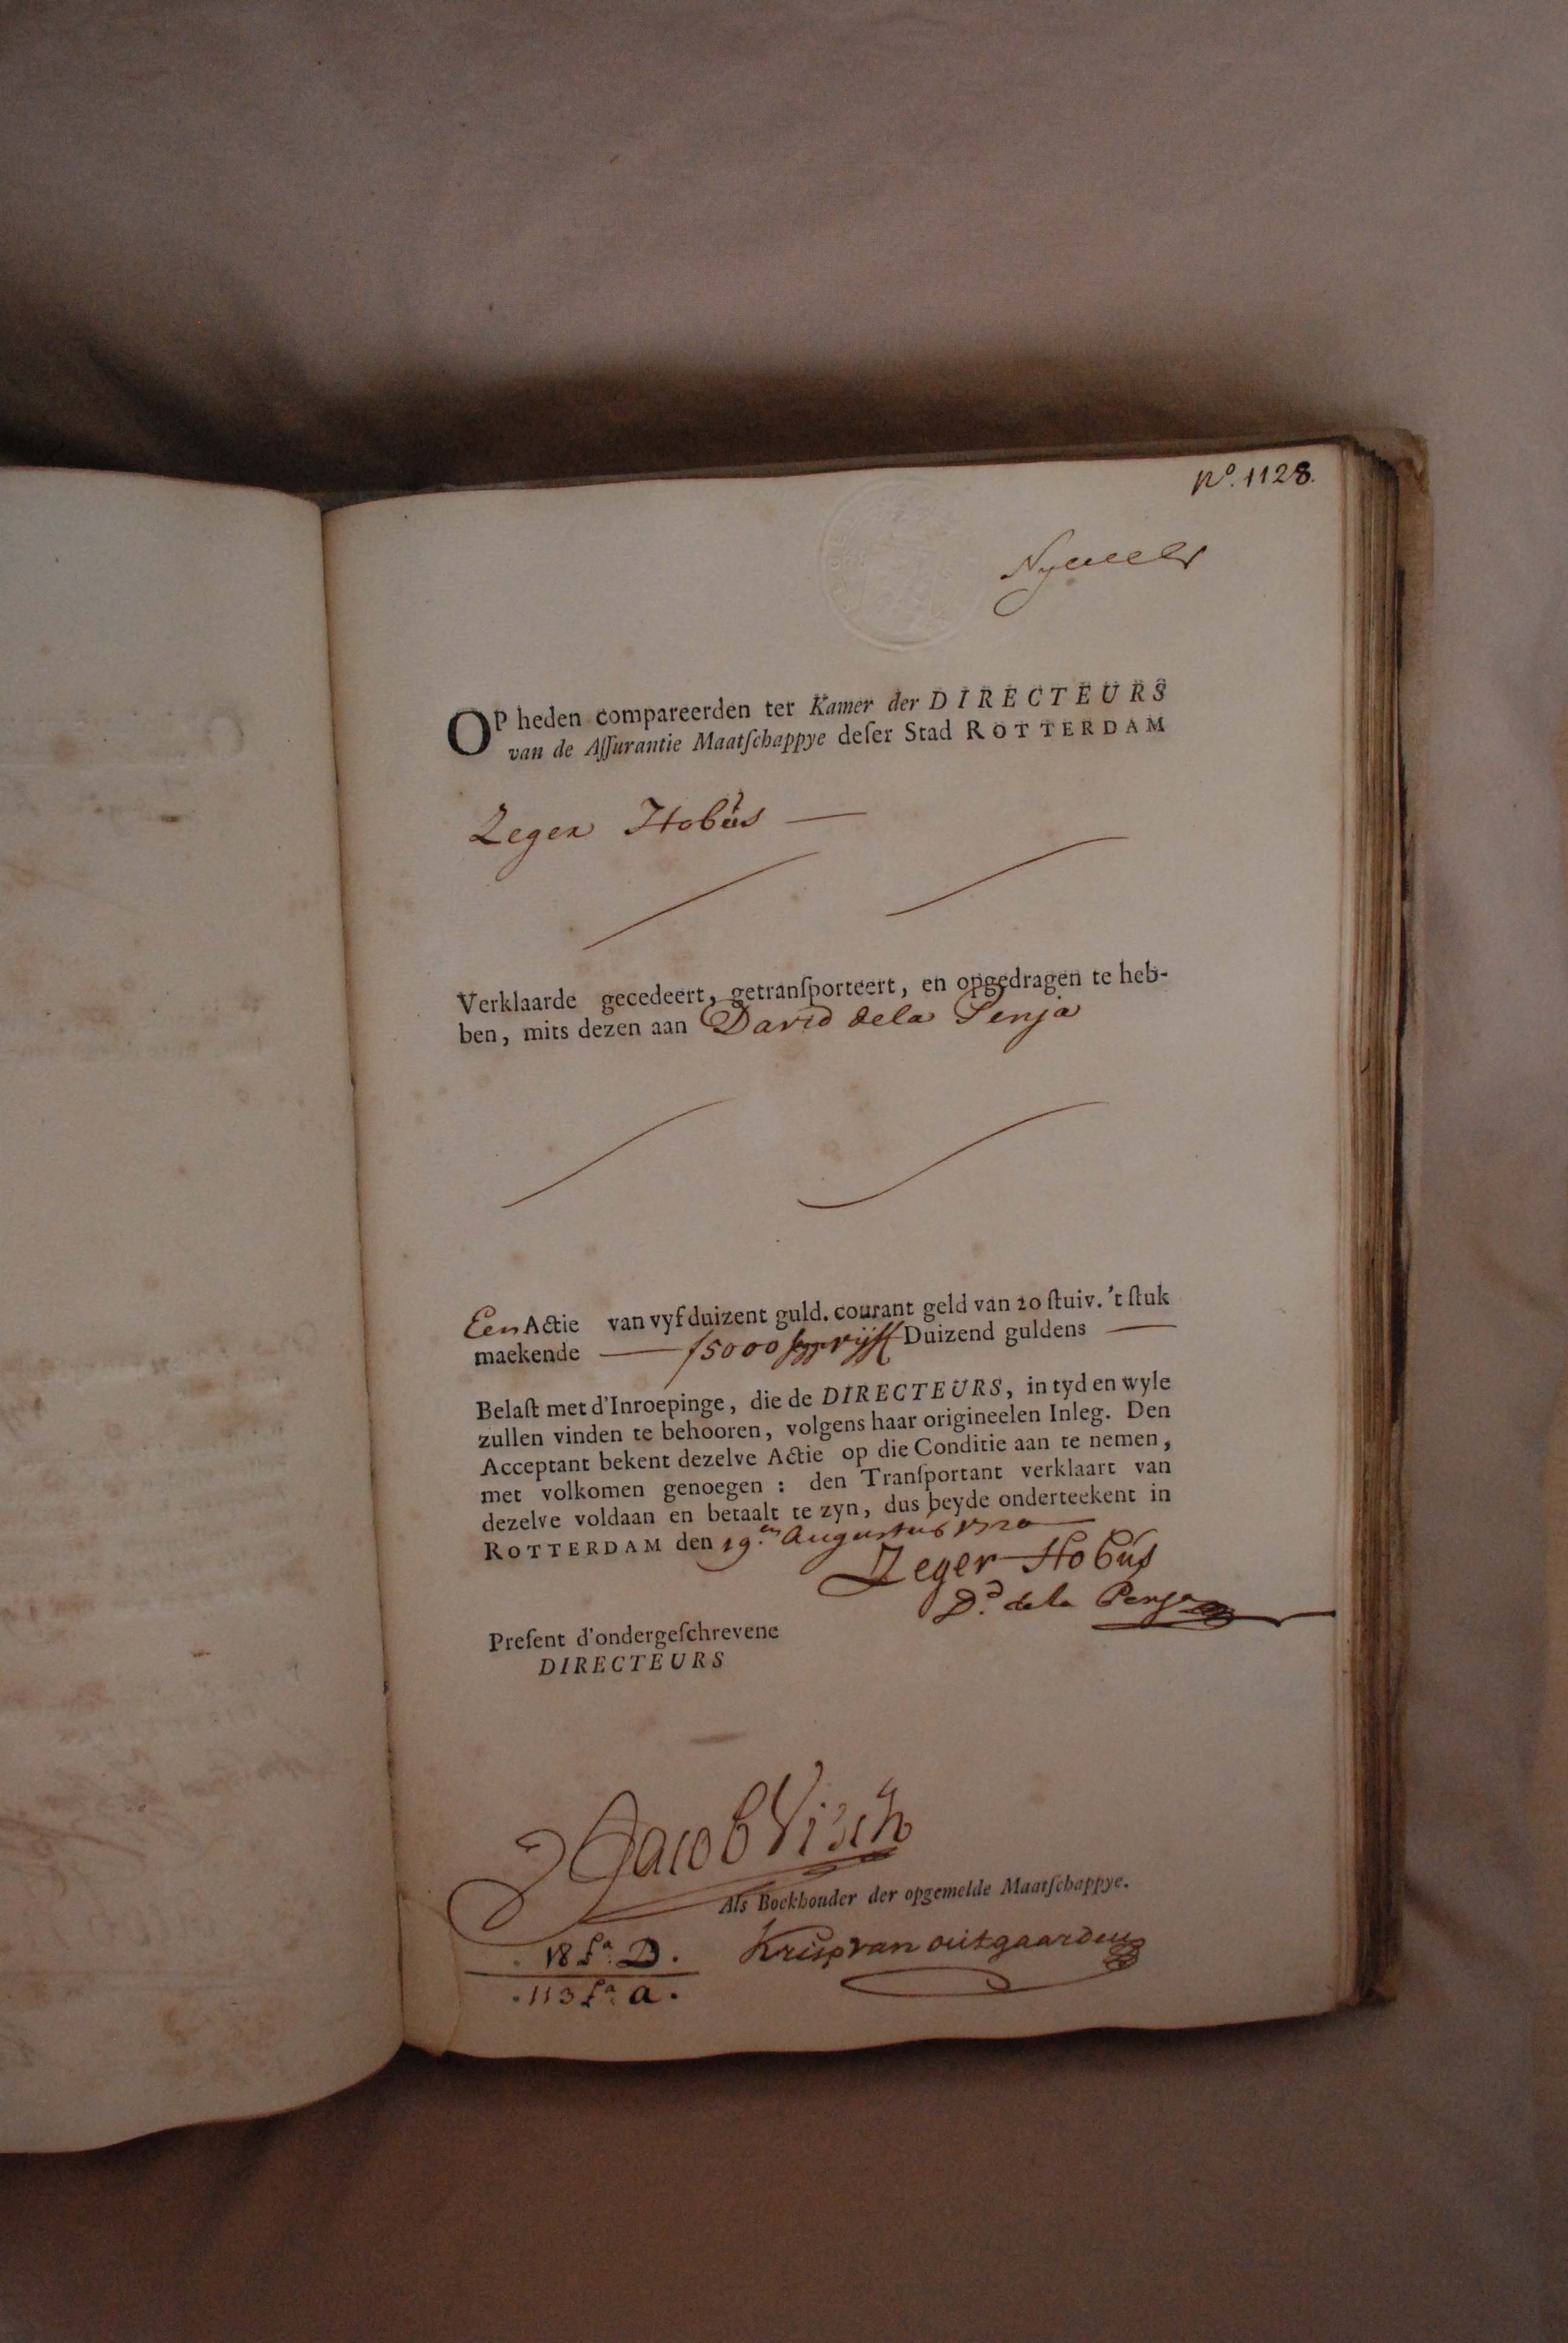 Nº. 1128.
OP heden compareerden ter Kamer der DIRECTEURS
van de Aſſurantie Maatſchappye deſer Stad ROTTERDAM
Zeger Hobús
Verklaarde gecedeert, getranſporteert, en opgedragen te heb-
ben, mits dezen aan David dela Penja
Een Actie van vyf duizent guld. courant geld van 20 ſtuiv. 't ſtuk
maekende f 5000 vijff Duizend guldens
Belaſt met d'Inroepinge, die de DIRECTEURS, in tyd en wyle
zullen vinden te behooren, volgens haar origineelen Inleg. Den
Acceptant bekent dezelve Actie op die Conditie aan te nemen,
met volkomen genoegen : den Tranſportant verklaart van
dezelve voldaan en betaalt te zyn, dus beyde onderteekent in
ROTTERDAM den 19.en Augustus 1720
Zeger Hobús
D.d dela Penja
Preſent d'ondergeſchrevene
DIRECTEURS
Jacob Visch
Als Boekhouder der opgemelde Maatſchappye.
18 fa. D.
Krisp van outgaarden
113 fa. a.